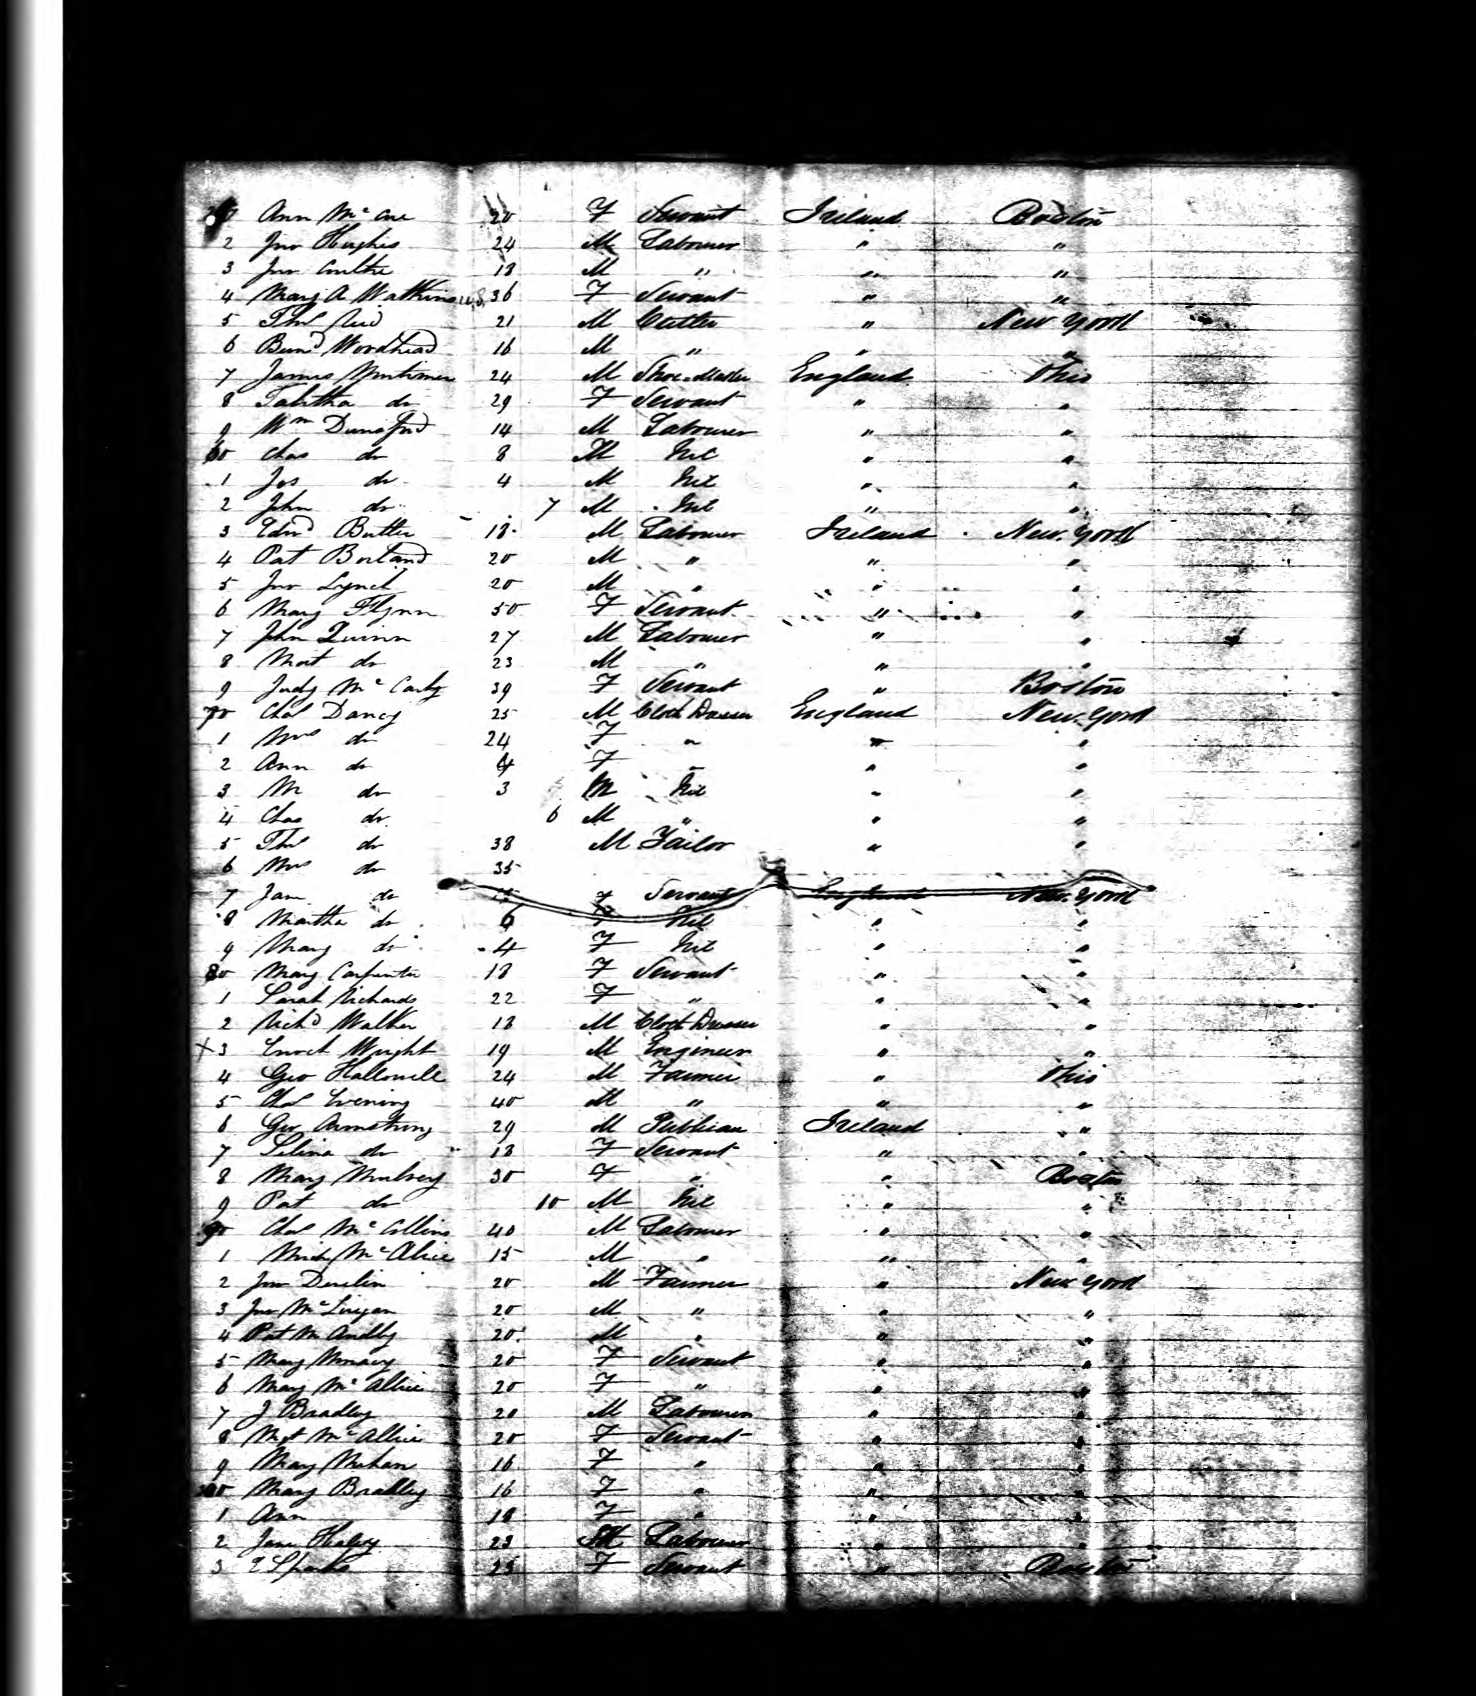 Ann Mc 20 F Servant Ireland Boston
2 Jno Hughes 24 M Labourer " "
3 Jno 18 M " " "
4 Mary A Watkins 36 F Servant " "
5 Thos Reid 21 M Cutler " New York
6 Benj Woodhead 16 M " " "
7 James Mortimer 24 M Shoe Maker England Ohio
8 Tabitha do 29 F Servant " "
9 Wm Dunsford 14 M Labourer " "
60 Chas do 8 M Nil " "
1 Jos do 4 M Nil " "
2 John do 7 M Nil " "
3 Edwd Butler 18 M Labourer Ireland New York
4 Pat Borland 20 M " " "
5 Jno Lynch 20 M " " "
6 Mary Flynn 50 F Servant " "
7 John Quinn 27 M Labourer " "
8 Mat do 23 M " " "
9 Judy Mc Carty 39 F Servant " Boston
70 Chas Dancy 25 M Cloth Dresser England New York
1 Mrs do 24 F " " "
2 Ann do 4 F " " "
3 M do 3 M Nil " "
4 Chas do 6 M " " "
5 Thos do 38 M Tailor " "
6 Mrs do 35
7 Jane do F Servant England New York
8 Martha do 6 F Nil " "
9 Mary do 4 F Nil " "
80 Mary Carpenter 18 F Servant " "
1 Sarah Richards 22 F " " "
2 Richd Walker 18 M Cloth Dresser " "
x 3 Enoch Wright 19 M Engineer " "
4 Geo Hallowell 24 M Farmer " Ohio
5 Chas Evening 40 M " " "
6 Geo Armstrong 29 M Publican Ireland "
7 Selina do 18 F Servant " "
8 Mary Mulvey 30 F " " Boston
9 Pat do 10 M Nil " "
90 Chas Mc Collins 40 M Labourer " "
1 Mich Mc Alice 15 M " " "
2 Jno Devlin 20 M Farmer " New York
3 Jno Mc 20 M " " "
4 Pat 20 M " " "
5 Mary 20 F Servant " "
6 Mary Mc Allice 20 F " " "
7 J Bradley 20 M Labourer " "
8 Mgt Mc Allice 20 F Servant " "
9 Mary Mehan 16 F " " "
Mary Bradley 16 F " " "
1 Ann 18 F " " "
2 Jane Haley 23 M Labourer " "
3 Sparks 25 F Servant " Boston